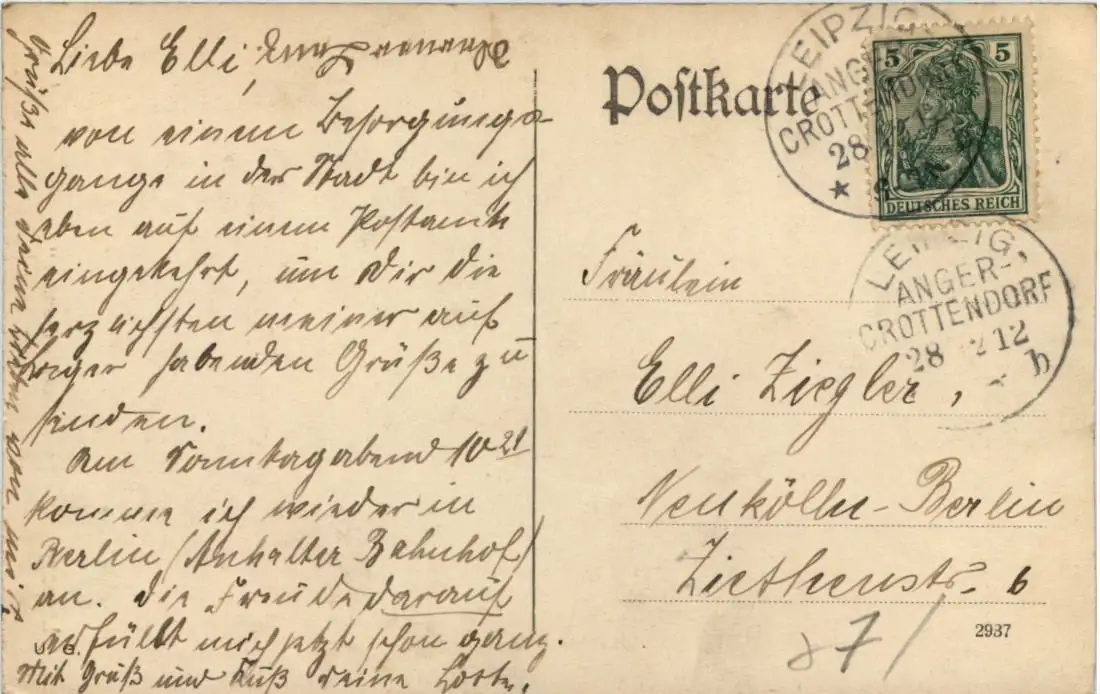 Liebe Elli,
von einem Besorgungs-
gange in der Stadt bin ich
eben auf einem Postamte
eingekehrt, um Dir die
herzlichsten meiner auf
Lager habenden Grüße zu
senden.
Am Sonntagabend 10 21
komme ich wieder in
Berlin (Anhalter Bahnhof)
an. Die Freude darauf
erfüllt mich jetzt schon ganz.
Mit Gruß und Kuß Deine
Grüße alle Deine Lieben von mir
Postkarte
5 5
DEUTSCHES REICH
LEIPZIG
ANGER-
CROTTENDORF
28
LEIPZIG,
ANGER-
CROTTENDORF
28 2 12
h
Fräulein
Elli Ziegler,
Neukölln-Berlin
Ziethenstr. 6
87/
2937